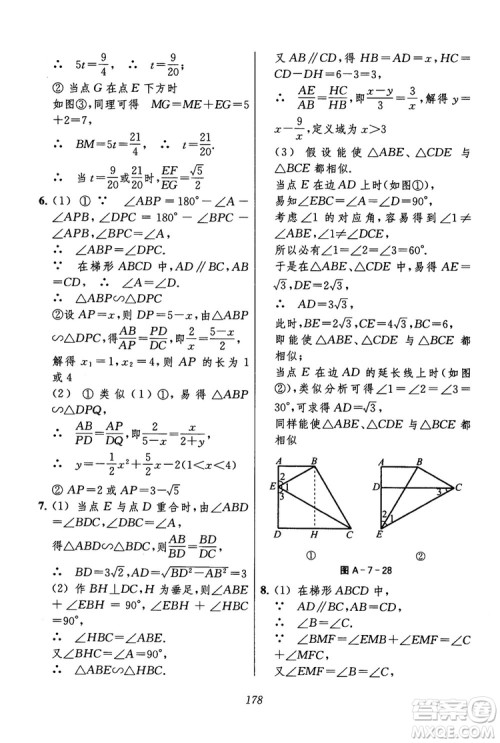 ∴ 5t=9/4, ∴ t=9/20;
② 当点 G 在点 E 下方时
如图③,同理可得 MG=ME+GE=5
+2=7,
∴ BM=5t=21/4, ∴ t=21/20.
∴ 当 t=9/20或21/20时,EF/EG=√5/2
6. (1) ① ∵ ∠ABP=180°-∠A-
∠APB,∠DPC=180°-∠BPC-
∠APB,∠BPC=∠A,
∴ ∠ABP=∠DPC.
∵ 在梯形 ABCD 中,∠A=∠D.
∴ △ABP∽△DPC
② 设 AP=x,则 DP=5-x,由△ABP
∽△DPC,得AB/AP=PD/DC,即2/x=(5-x)/2,
解得 x₁=1,x₂=4,则 AP 的长为 1
或4
(2) ① 类似(1),易得△ABP∽
△DPQ,
∴ AB/PD=AP/DQ,即2/(5-x)=x/(2+y),
∴ y=-1/2x²+5/2x-2(1<x<4)
② AP=2 或 AP=3-√5
7. (1) 当点 E 与点 D 重合时,由∠ABD
=∠BDC,∠ADB=∠DBC,∠A=∠DBC,
得△ABD∽△BDC,∴ AB/BD=BD/DC,
∴ BD=3√2,∴ AD=√(BD²-AB²)=3
(2) 作 BH⊥DC,H 为垂足,则∠ABE
+∠EBH=90°,∠HBC+∠EBH
=90°,
∴ ∠HBC=∠ABE.
又∠A=∠BHC=90°,
∴ △ABE∽△HBC
又 AB∥CD,得 HB=AD=x,HC=
CD-DH=6-3=3,
∴ AE/AB=HC/HB,即(x-y)/3=3/x,解得 y=
x-9/x,定义域为 x>3
(3) 假设能使△ABE、△CDE 与
△BCE 都相似.
当点 E 在边 AD 上时(如图①),
易得∠EBC=∠A=∠D=90°,
考虑∠1的对应角,容易得到∠1≠
∠ABE,∠1≠∠2,
所以必有∠1=∠2=∠3=60°.
于是在△ABE、△CDE 中,易得 AE
=√3,DE=2√3,∴ x=AD=3√3
此时,BE=2√3,CE=4√3,BC=6,
即能使△ABE、△CDE 与△BCE 都
相似;
当点 E 在边 AD 的延长线上时(如图
②),类似分析可得∠1=∠2=∠3
=30°,可求得 x=AD=√3,
同样能使△ABE、△CDE 与△BCE 都
相似
A B E 2 1 3 D H C ①
A B D 3 C 1 2 E ②
图 A-7-28
8. (1) 在梯形 ABCD 中,
∵ AD∥BC,AB=CD,
∴ ∠B=∠C.
∵ ∠BMF=∠EMF+∠EMB=∠C
+∠MFC,
又∠EMF=∠B,∴ ∠EMF=∠C,
178